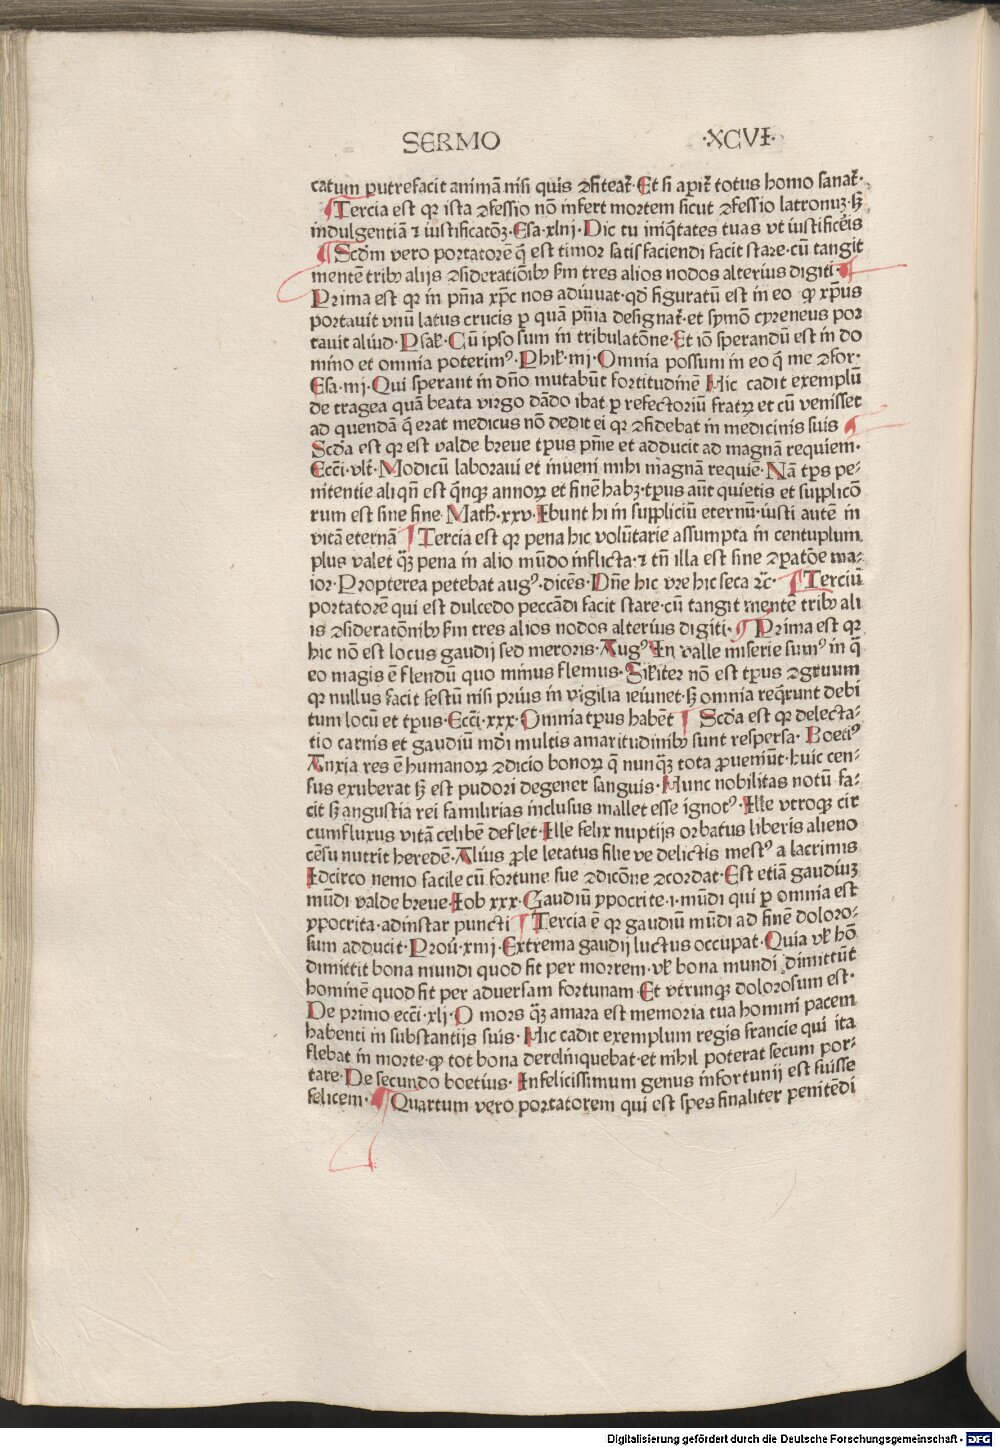 SERMO ·XCVI·
catum putrefacit animā nisi quis ↄfiteat᷑· Et si apit᷑ totus homo sanat᷑·
¶ Tercia est qꝛ ista ↄfessio nō infert mortem sicut ↄfessio latronuꝫ· sꝫ
indulgentiā ⁊ iustificatōꝫ· Esa· xliij· Dic tu iniq̄tates tuas vt iustificēis
¶ Scd̄m vero portatorē q̄ est timor satisfaciendi facit stare· cū tangit
mentē tribꝰ alijs ↄsideratiōibꝰ ẜm tres alios nodos alterius digiti· ¶
Prima est qꝛ in pn̄ia xp̄c nos adiuuat· qd̄ figuratū est in eo ꝙ xp̄us
portauit vnū latus crucis p quā pn̄ia designat᷑· et symō cyreneus por
tauit aliud· Psal̄· Cū ipso sum in tribulatōne· Et iō sperandū est in do
mino et omnia poterimꝰ· Phil̄· iiij· Omnia possum in eo q̄ me ↄfor·
Esa· iiij· Qui sperant in dn̄o mutabūt fortitudinē Hic cadit exemplū
de tragea quā beata virgo dādo ibat p refectoriū fratꝝ et cū venisset
ad quendā q̄ erat medicus nō dedit ei qꝛ ↄfidebat in medicinis suis ¶
Scd̄a est qꝛ est valde breue tp̄us pn̄ie et adducit ad magnā requiem·
Ecc̄i· vlt̄· Modicū laboraui et inueni mihi magnā requiē· Nā tp̄s pe-
nitentie aliqn̄ est q̄nqꝫ annoꝝ et finē habꝫ· tp̄us aūt quietis et supplicō
rum est sine fine· Math̄· xxv· Ibunt hi in suppliciū eternū· iusti autē in
vitā eternā ¶ Tercia est qꝛ pena hic volūtarie assumpta in centuplum
plus valet qꝫ̄ pena in alio mūdo inflicta· ⁊ tn̄ illa est sine ↄpatōe ma-
ior· Propterea petebat augꝰ· dicēs· Dn̄e hic vre hic seca ⁊c̄· ¶ Terciū
portatorē qui est dulcedo peccādi facit stare· cū tangit mentē tribꝰ ali
is ↄsideratōnibꝰ ẜm tres alios nodos alterius digiti· ¶ Prima est qꝛ
hic nō est locus gaudij sed meroris· Augꝰ In valle miserie sumꝰ in q̄
eo magis ē flendū quo minus flemus· Sil̄iter nō est tp̄us ↄgruum
qꝛ nullus facit festū nisi prius in vigilia ieiunet· sꝫ omnia req̄runt debi
tum locū et tp̄us· Ecc̄i· xxx· Omnia tp̄us habēt ¶ Scd̄a est qꝛ delecta-
tio carnis et gaudiū mūdi multis amaritudinibꝰ sunt respersa· Boeciꝰ
Anxia res ē humanoꝝ ↄdicio bonoꝝ q̄ nunqꝫ̄ tota ꝓueniūt· huic cen-
sus exuberat sꝫ est pudori degener sanguis· Hunc nobilitas notū fa-
cit sꝫ angustia rei familirias inclusus mallet esse ignotꝰ· Ille vtroqꝫ cir
cumfluxus vitā celibē deflet· Ille felix nuptijs orbatus liberis alieno
cēsu nutrit heredē· Alius ꝓle letatus filie ve delictis mestꝰ a lacrimis
Idcirco nemo facile cū fortune sue ↄdicōne ↄcordat· Est etiā gaudiuꝫ
mūdi valde breue· Iob xxx· Gaudiū ypocrite· i· mūdi qui p omnia est
ypocrita· adinstar puncti ¶ Tercia ē qꝛ gaudiū mūdi ad finē doloro-
sum adducit· Prou̅· xiiij· Extrema gaudij luctus occupat· Quia vl̄ hō
dimittit bona mundi quod fit per mortem· vl̄ bona mundi dimittūt
hominē quod fit per aduersam fortunam· Et vtrunqꝫ dolorosum est·
De primo ecc̄i· xlj· O mors qꝫ̄ amara est memoria tua homini pacem
habenti in substantijs suis· Hic cadit exemplum regis francie qui ita
flebat in morte· ꝙ tot bona derelinquebat· et nihil poterat secum por-
tare· De secundo boetius· Infelicissimum genus infortunij est fuisse
felicem· ¶ Quartum vero portatorem qui est spes finaliter penitēdi
Digitalisierung gefördert durch die Deutsche Forschungsgemeinschaft - DFG